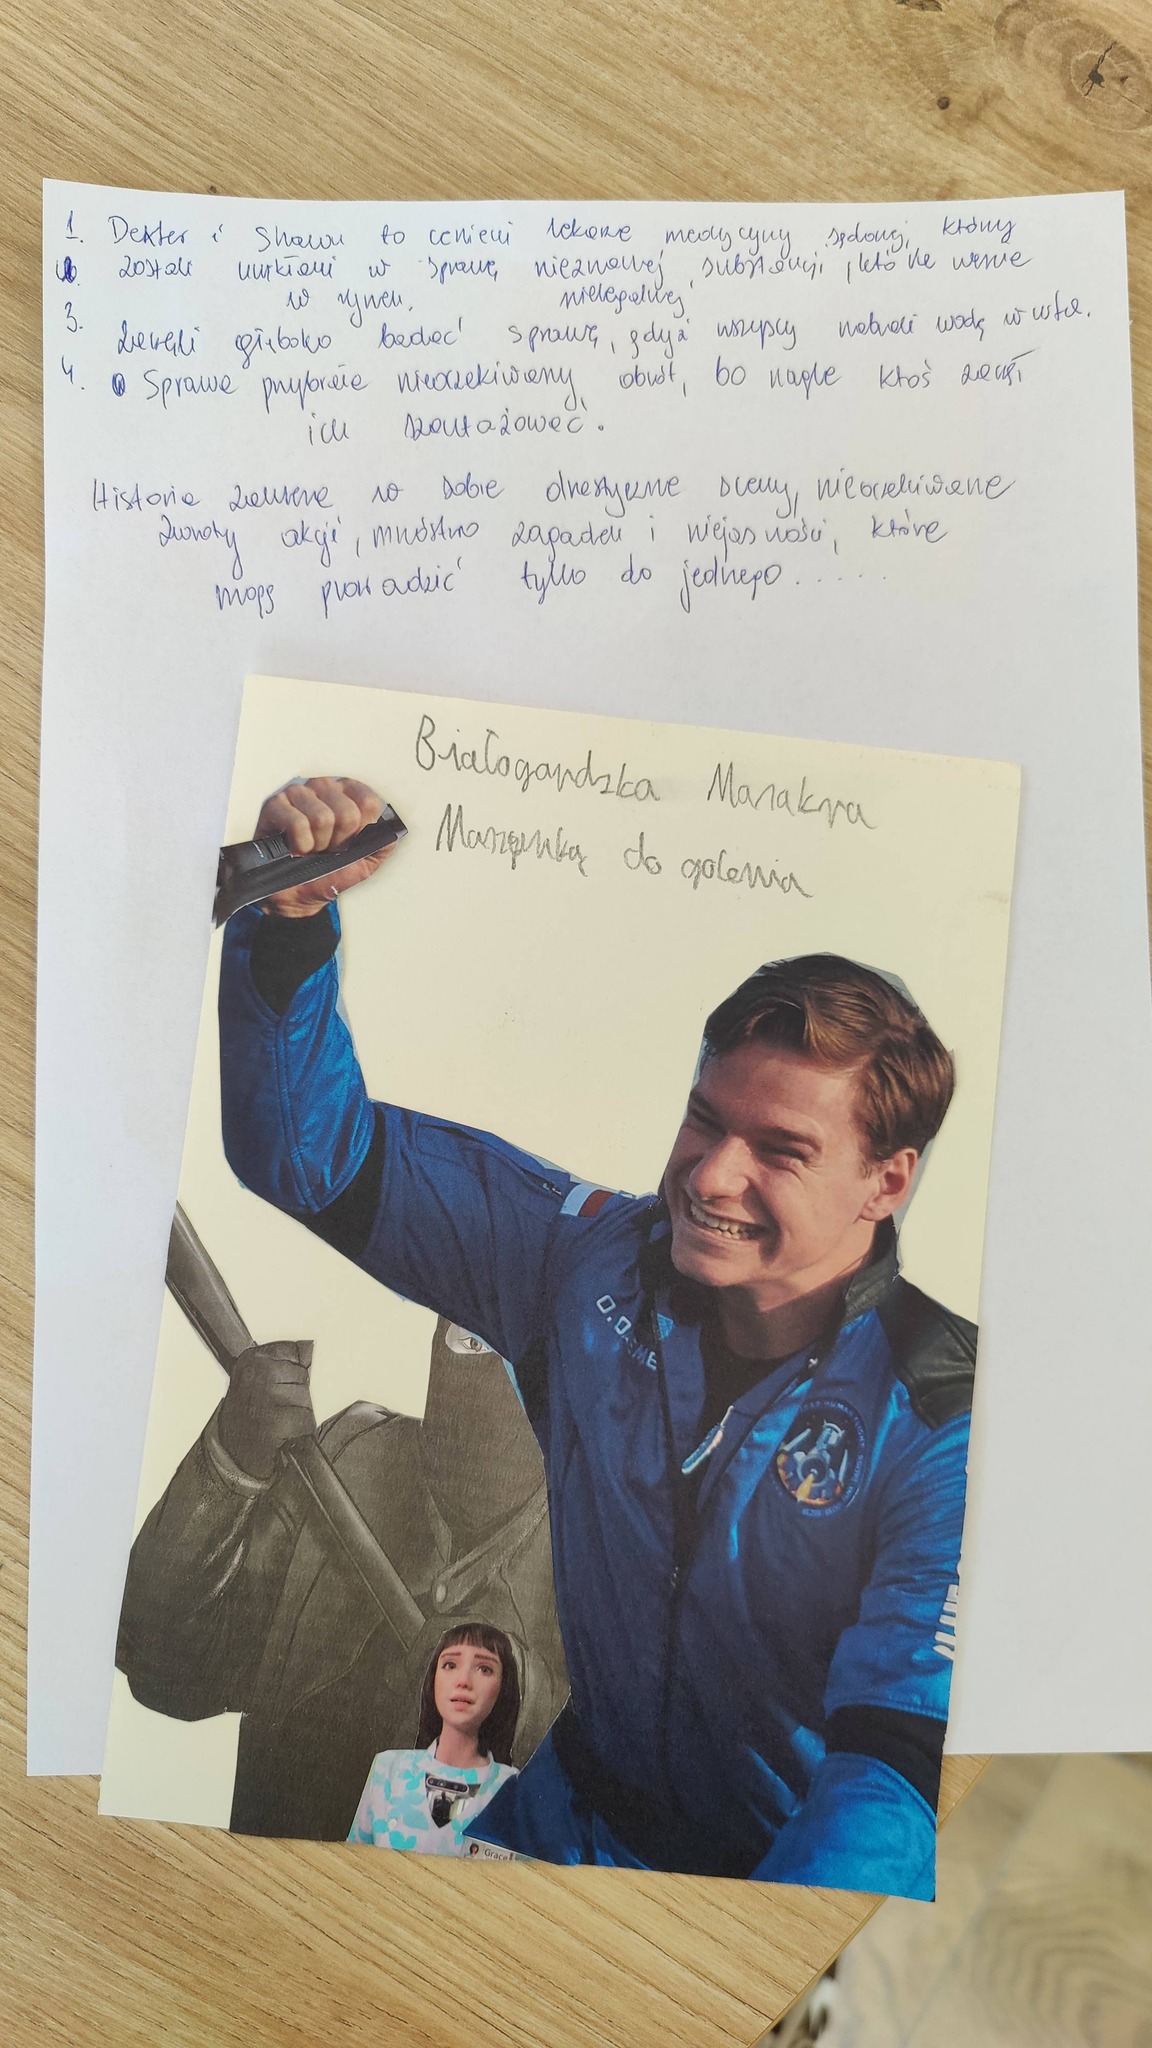 1. Dexter i Shawn to cenieni lekarze medycyny sądowej, którzy
zostali uwikłani w sprawę nieznanej substancji, która weszła
w rynek. nielegalnej
3. Zaczęli głęboko badać sprawę, gdyż wszyscy nabrali wodę w usta.
4. Sprawa przybrała nieoczekiwany obrót, bo nagle ktoś zaczął
ich szantażować.
Historia zawiera w sobie drastyczne sceny, nieoczekiwane
zwroty akcji, mnóstwo zagadek i niejasności, które
mogą prowadzić tylko do jednego......
Białogardzka Masakra
Maszynką do golenia
O.D
Grace